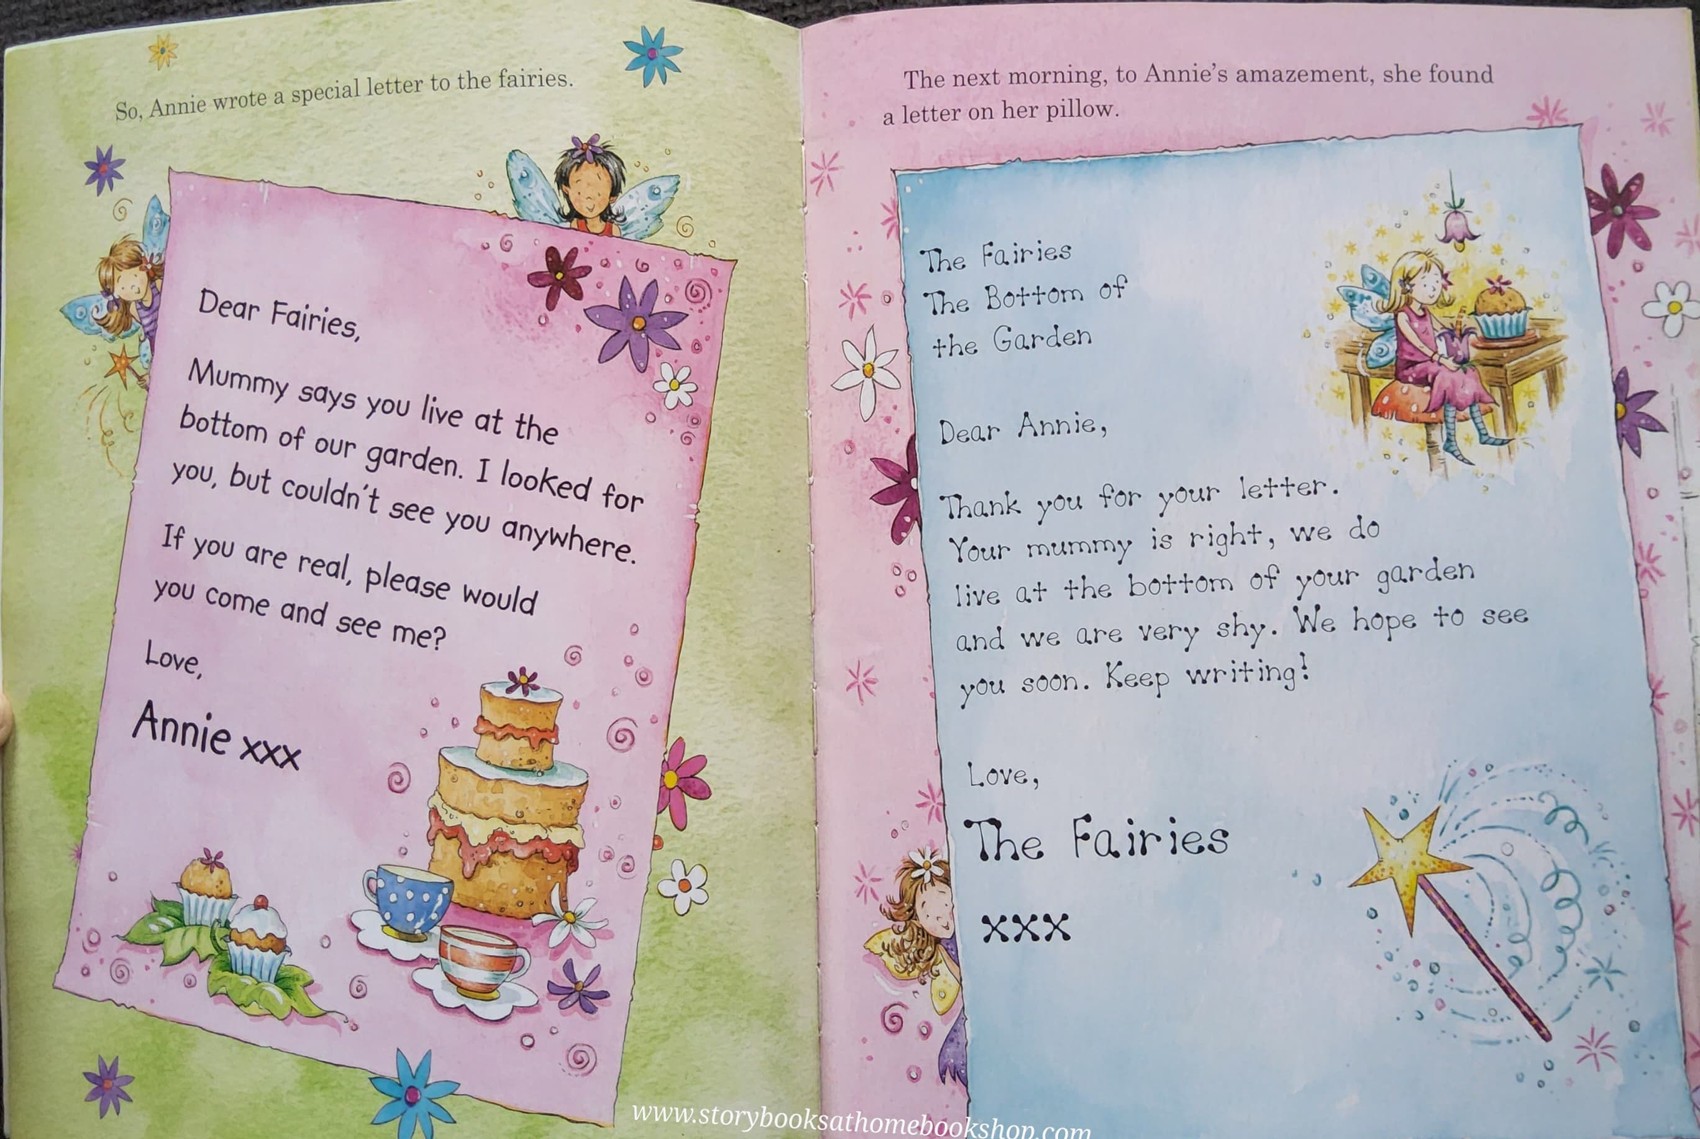 So, Annie wrote a special letter to the fairies.
Dear Fairies,
Mummy says you live at the
bottom of our garden. I looked for
you, but couldn't see you anywhere.
If you are real, please would
you come and see me?
Love,
Annie xxx
The next morning, to Annie's amazement, she found
a letter on her pillow.
The Fairies
The Bottom of
the Garden
Dear Annie,
Thank you for your letter.
Your mummy is right, we do
live at the bottom of your garden
and we are very shy. We hope to see
you soon. Keep writing!
Love,
The Fairies
xxx
www.storybooksathomebookshop.com